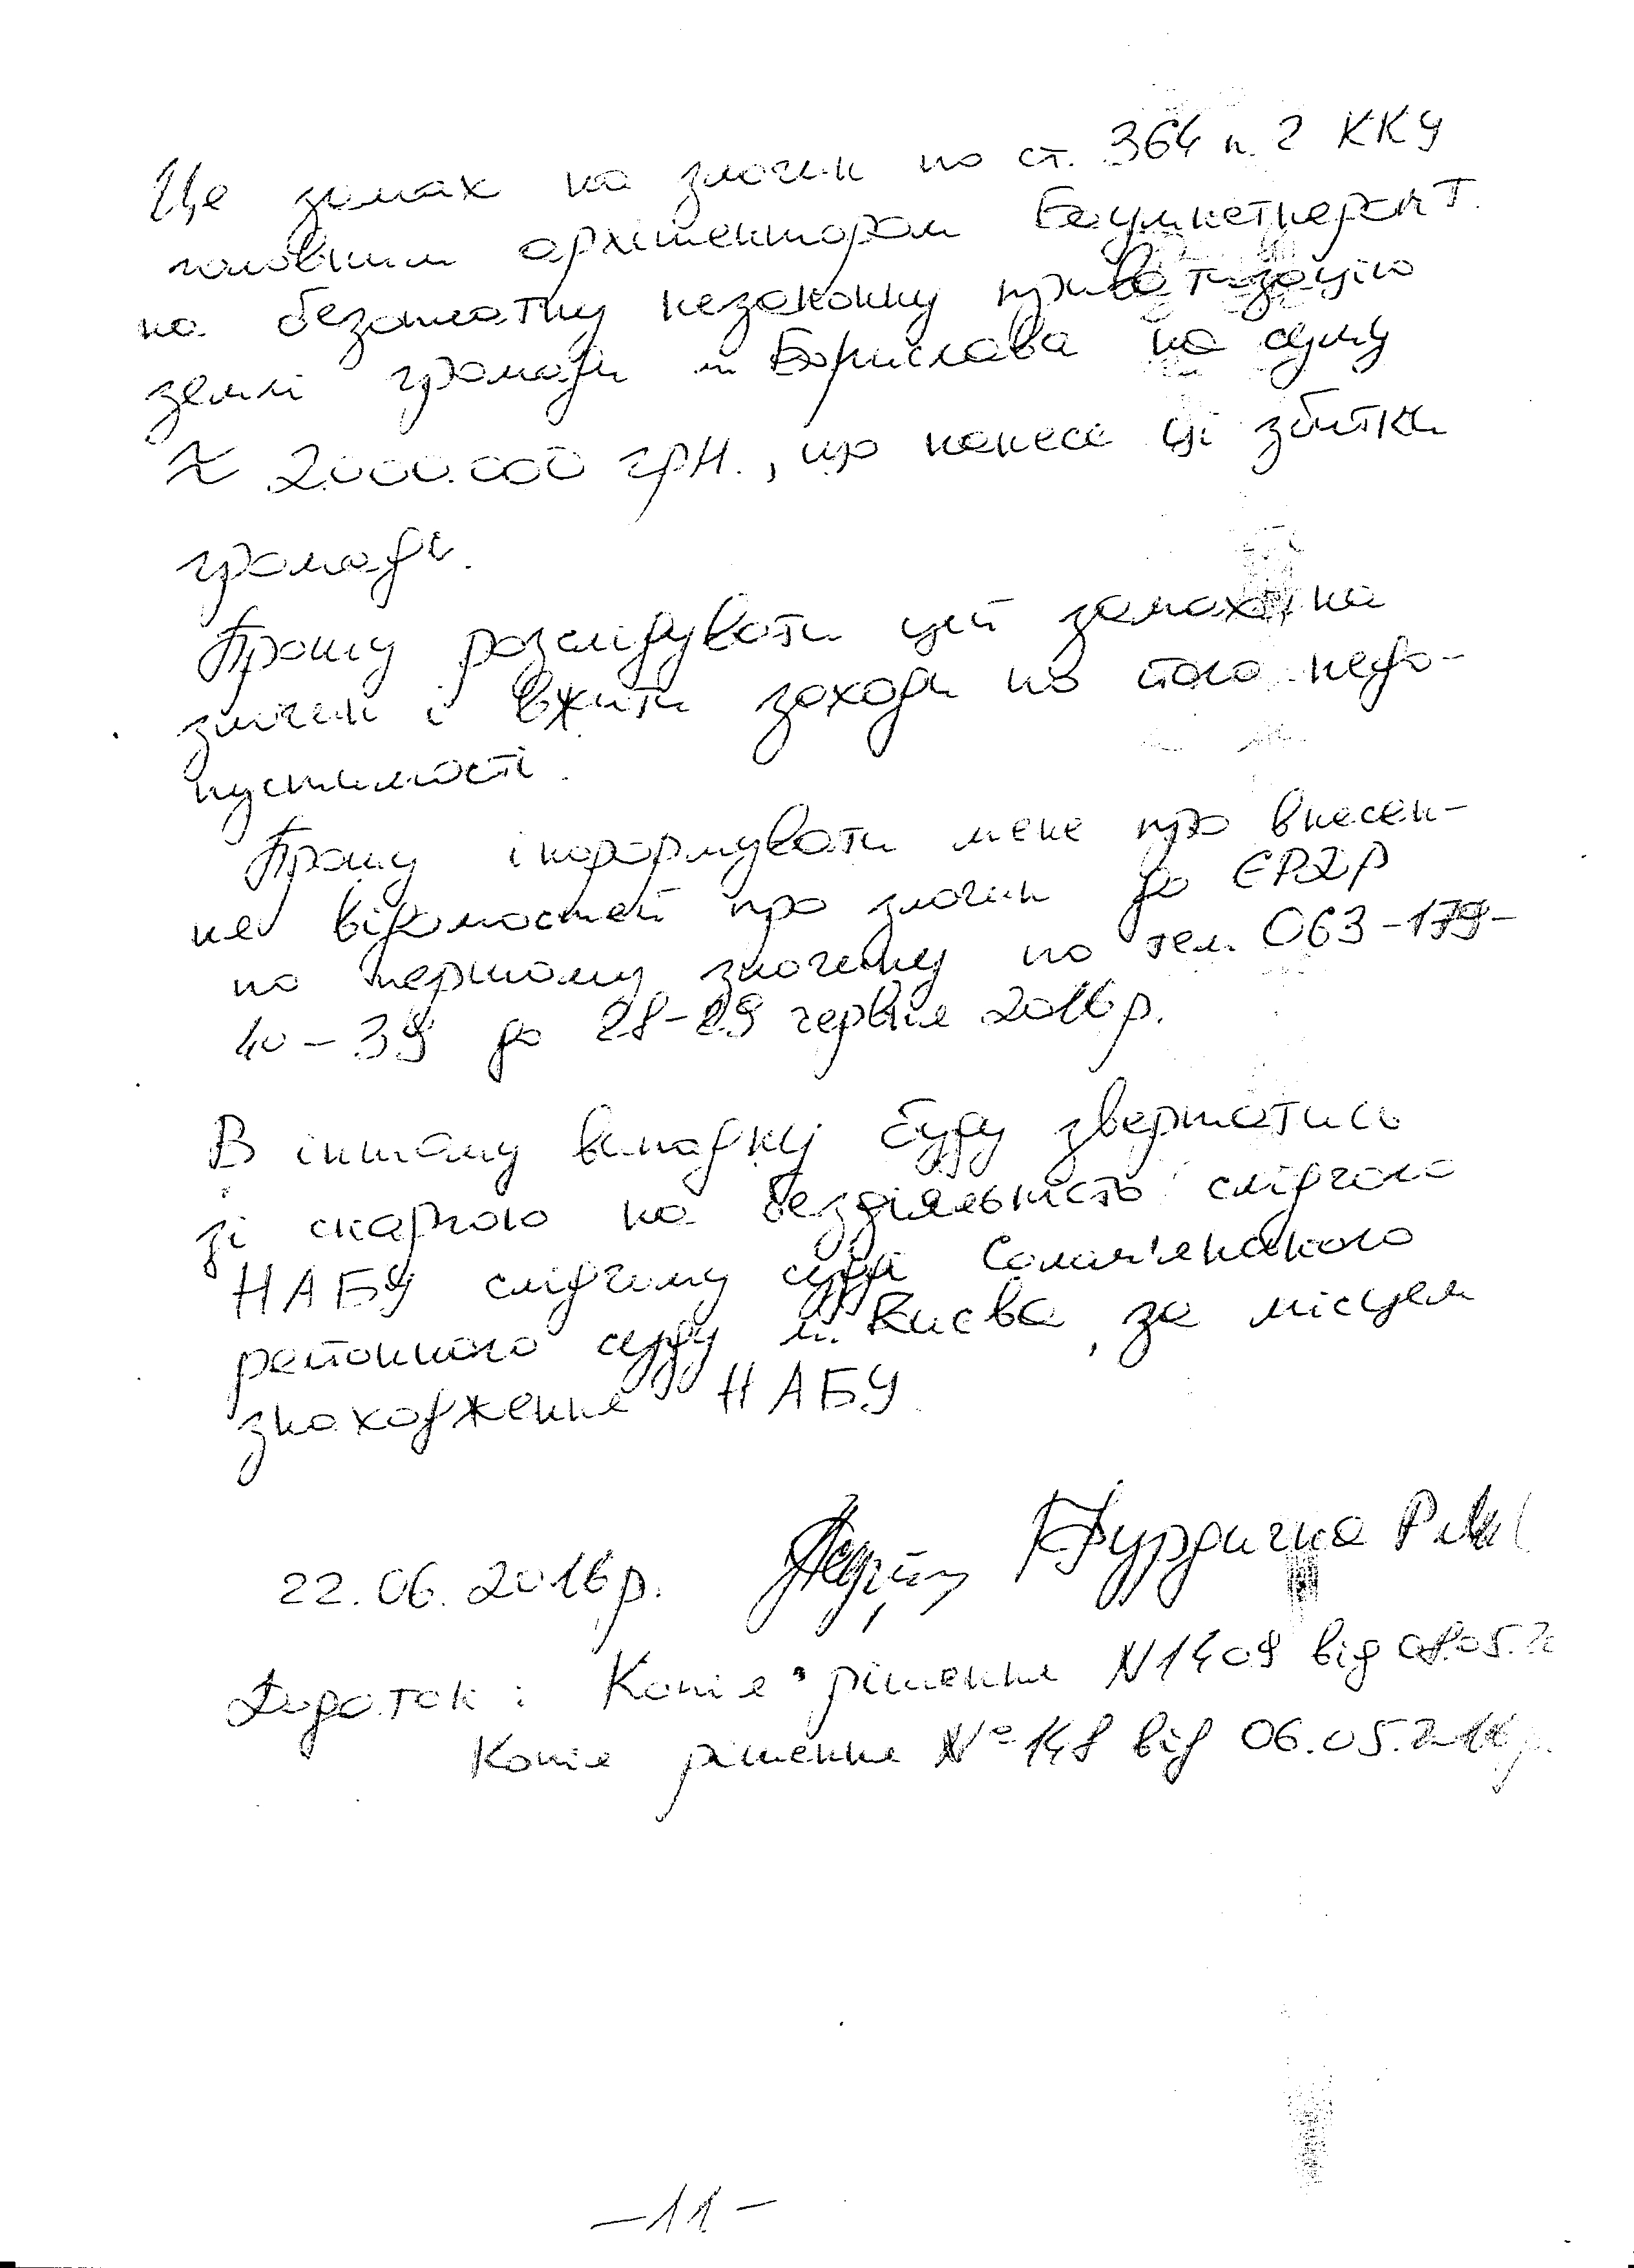 Це замах на злочин по ст. 364 п. 2 ККУ
головним архітектором Т.
на безоплатну незаконну приватизацію
землі громади м Борислава на суму
≈ 2000.000 грн., що нанесе ці збитки
громаді.
Прошу розслідувати цей замах на
злочин і вжити заходи по його недо-
пустимості.
Прошу інформувати мене про внесен-
ня відомостей про злочин до ЄРДР
по першому злочину по тел. 063-179-
40-39 до 28-29 червня 2016р.
В іншому випадку буду звертатись
зі скаргою на бездіяльність слідчого
НАБУ слідчому судді Солом'янського
районного суду м. Києва, за місцем
знаходження НАБУ.
22.06.2016р.
Додаток: Копія рішення N1409 від 08.05.2
Копія рішення №148 від 06.05.2016р.
-11-